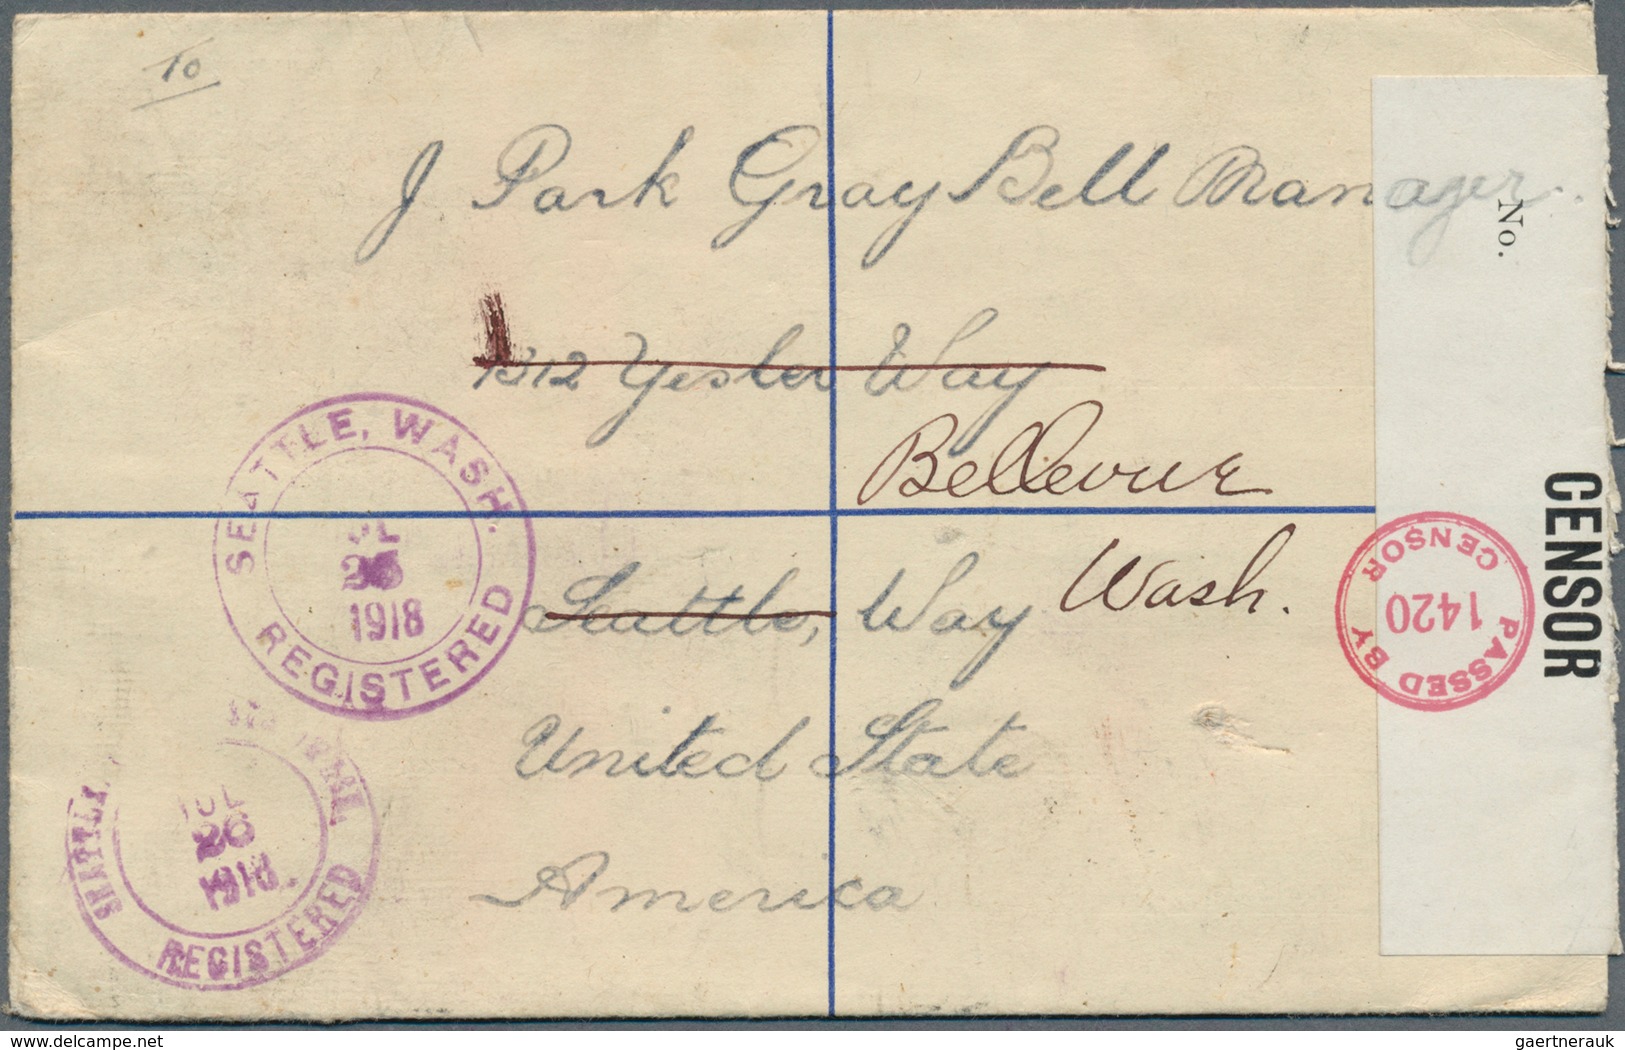 To
J Park Gray Bell Manager.
1312 Yesler Way
Bellevue
Seattle, Way Wash.
United State
America
SEATTLE, WASH.
JUL
1918
REGISTERED
JUL
26
1918
REGISTERED
No.
CENSOR
PASSED BY
1420
CENSOR
www.delcampe.net
gaertnerauk